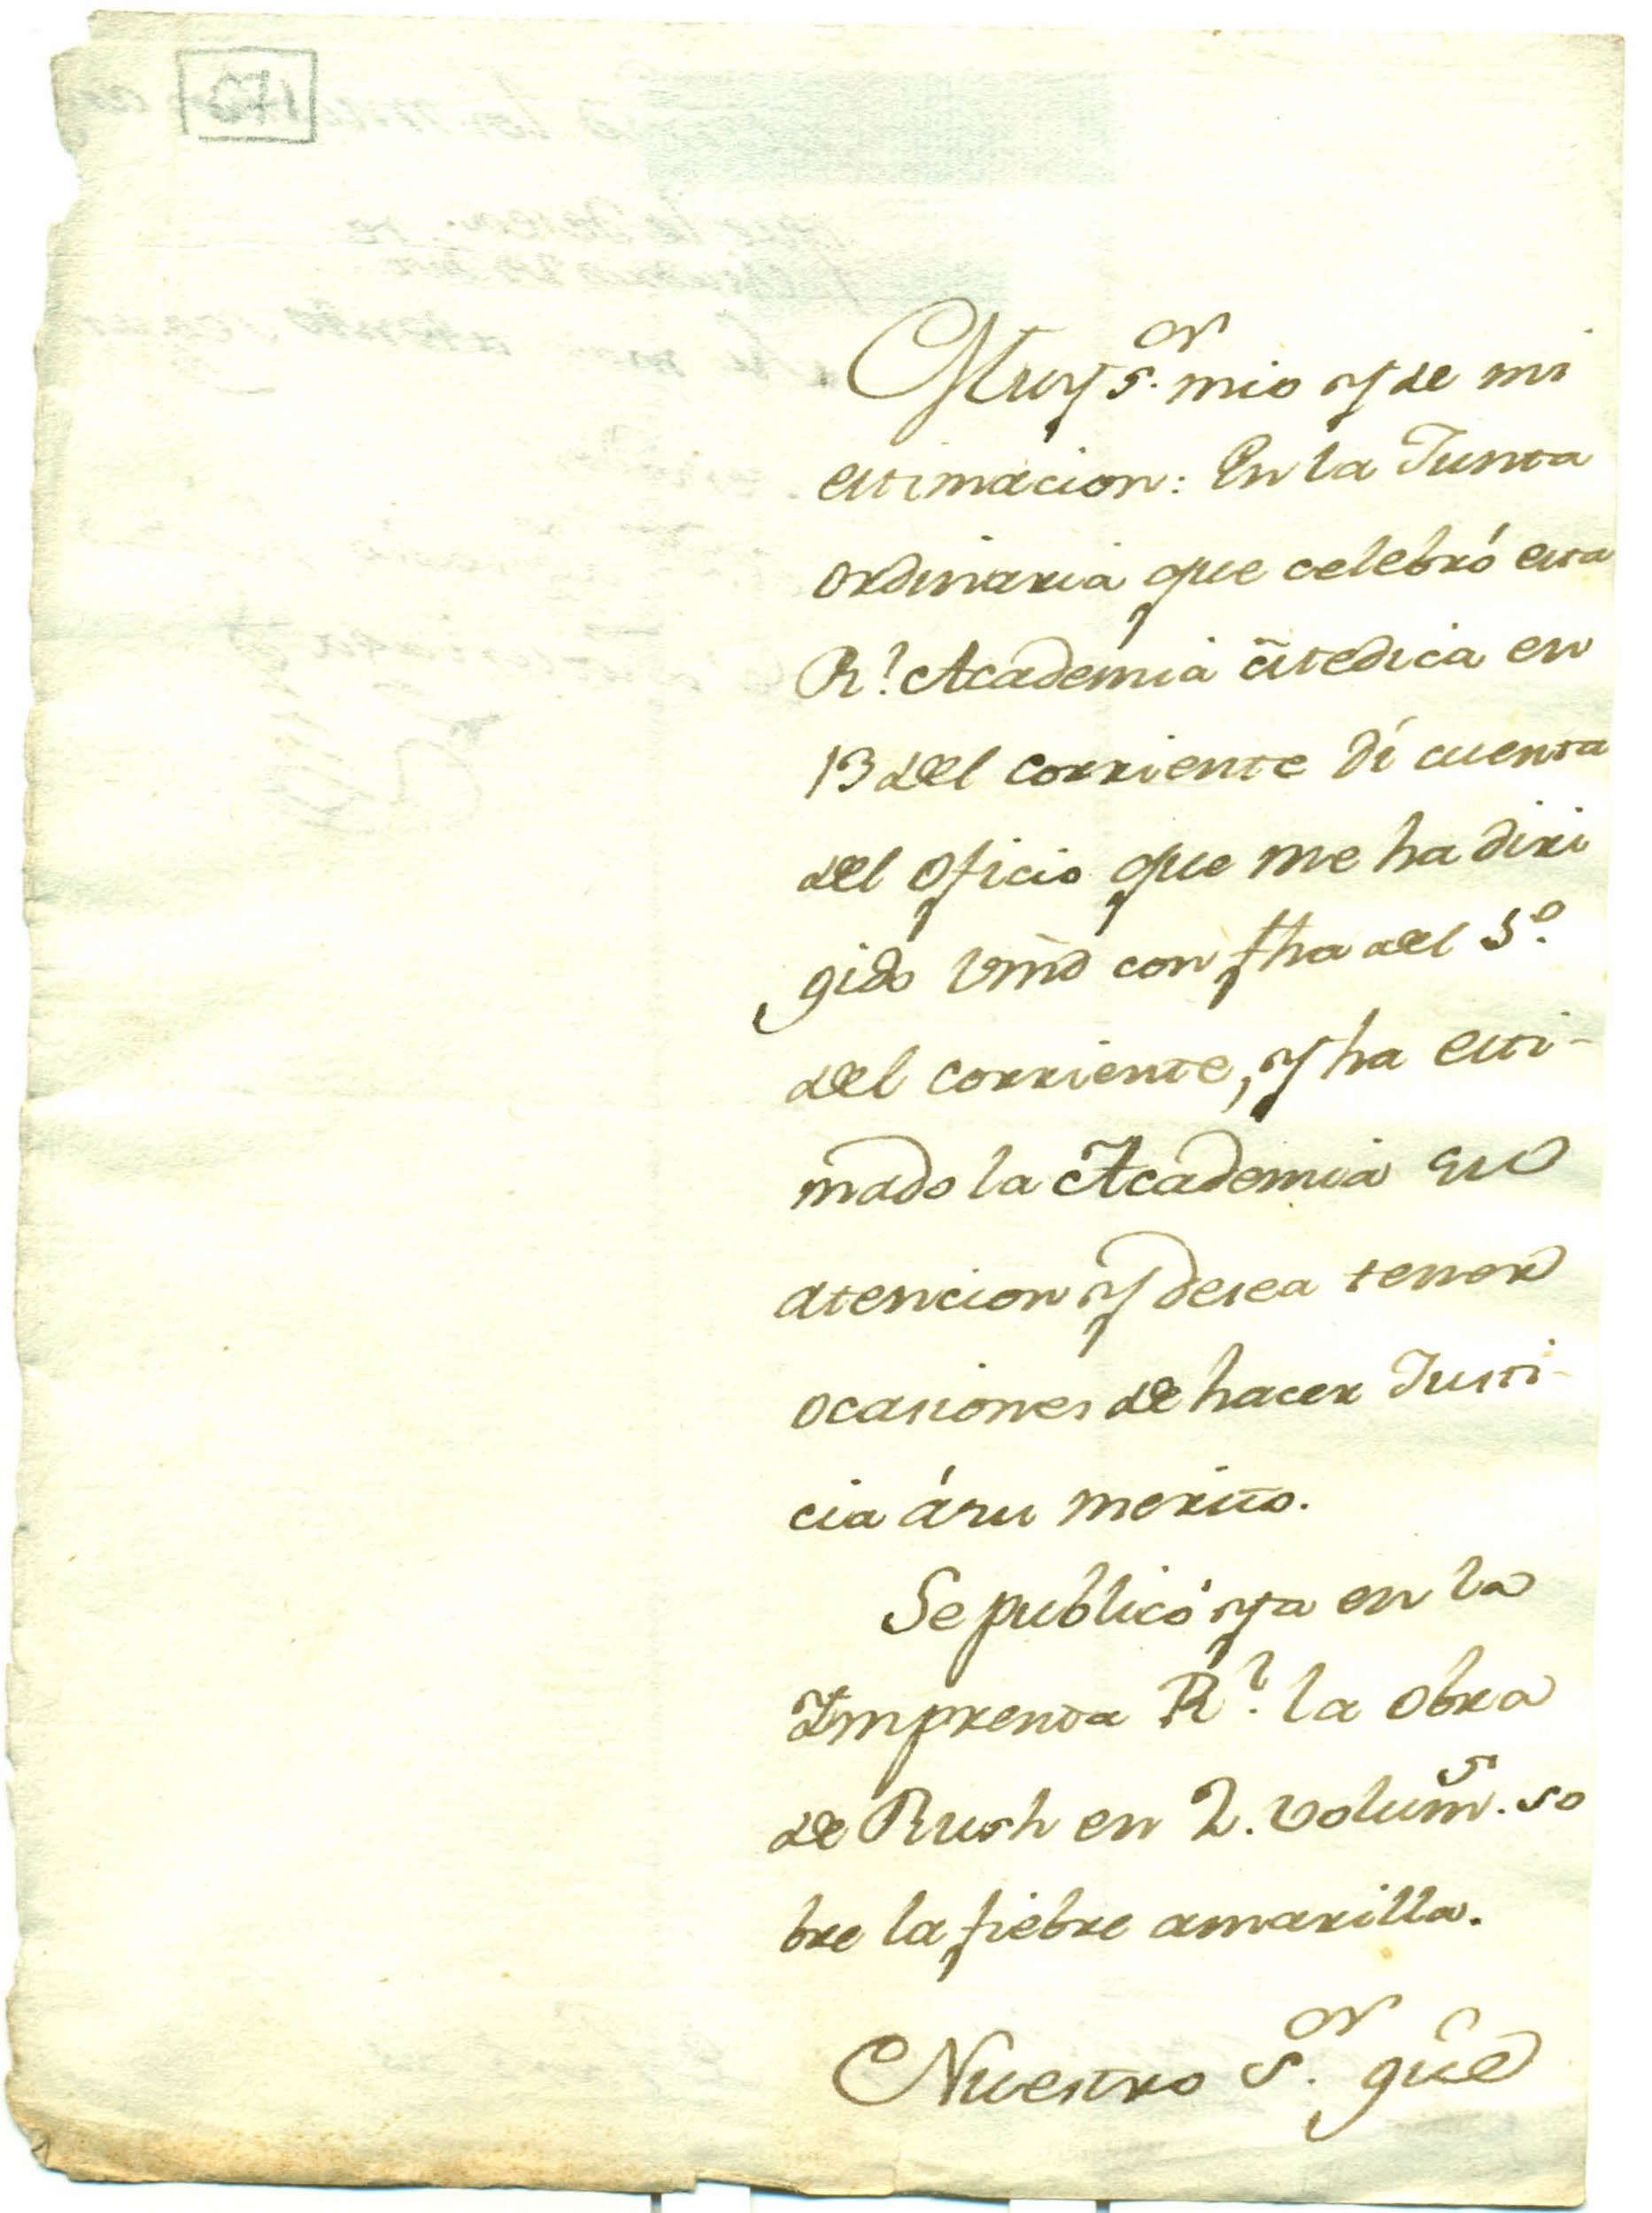 Muy S.or mio y de mi
estimacion: En la Junta
ordinaria que celebró esta
R.l Academia Medica en
13 del corriente dí cuenta
del oficio que me ha diri
gido Vmd con fha del 5.o
del corriente, y ha esti-
mado la Academia su
atencion y desea tener
ocasiones de hacer Justi-
cia á su merito.
Se publicó ya en la
Imprenta R.l la obra
de Rush en 2. volum.s so
bre la fiebre amarilla.
Nuestro S.or gũe